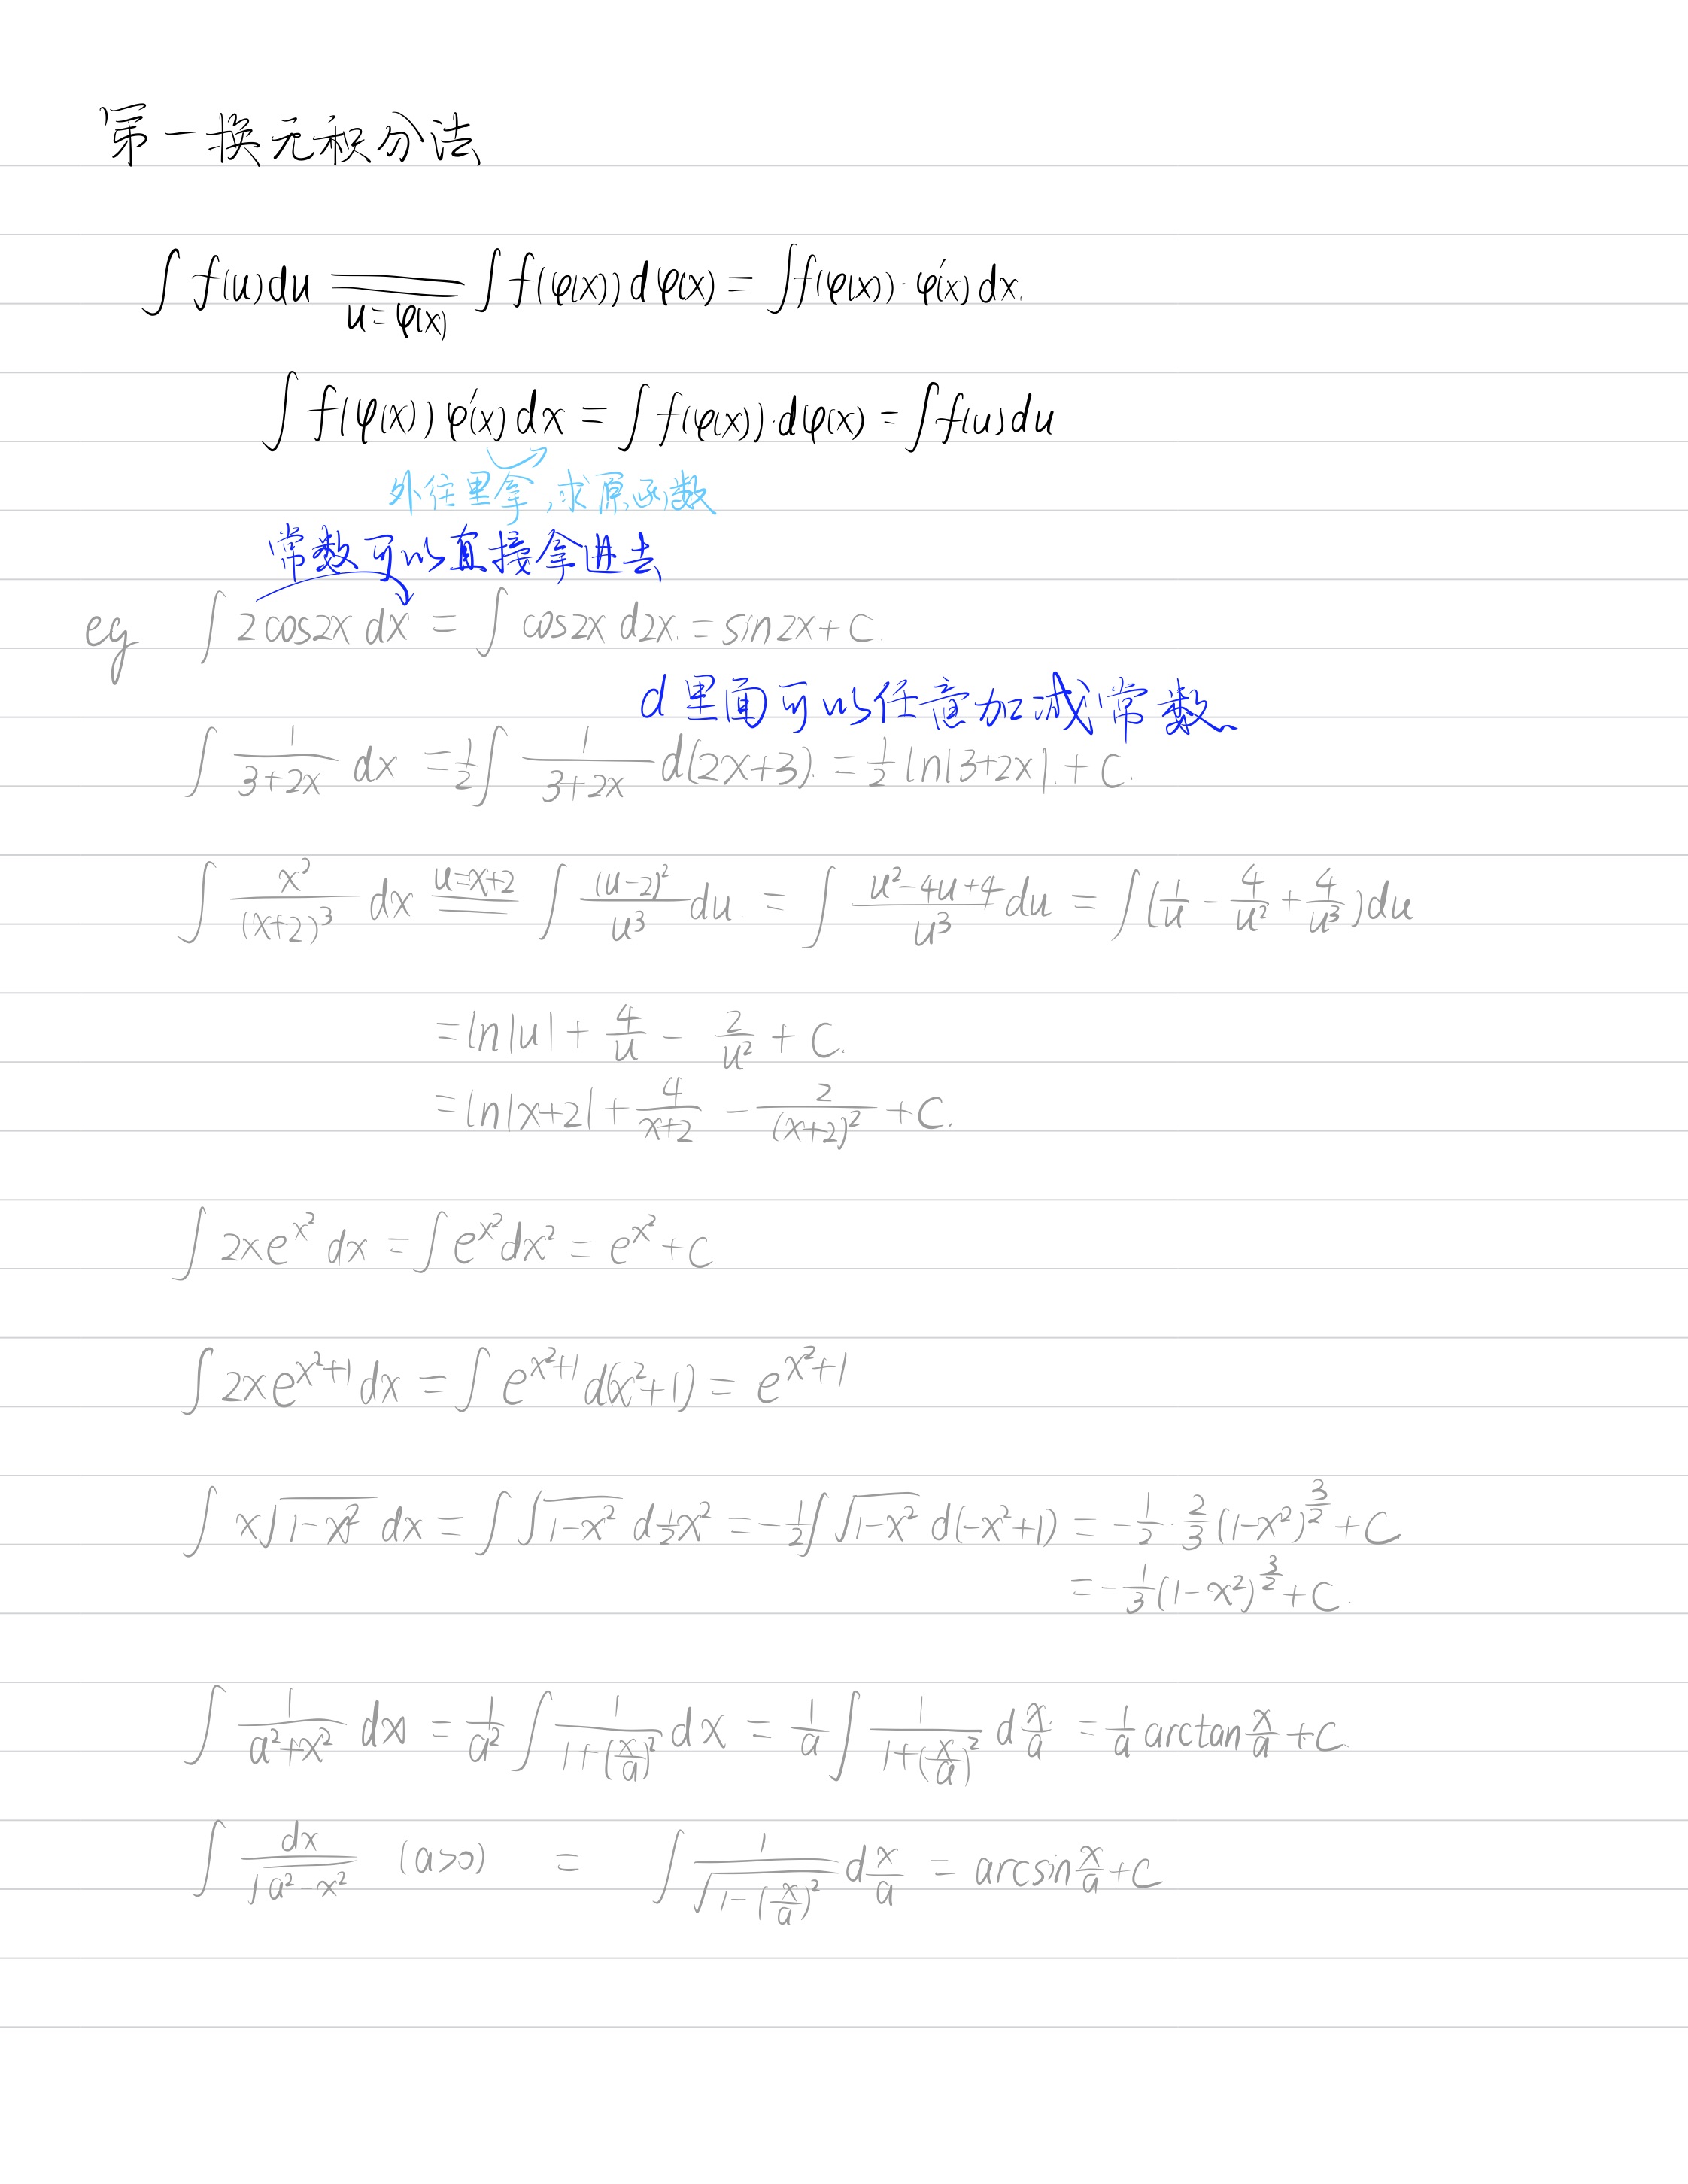 第一换元积分法
∫ f(u) du ═(u=φ(x)) ∫ f(φ(x)) dφ(x) = ∫ f(φ(x))·φ'(x) dx.
∫ f(φ(x)) φ'(x) dx = ∫ f(φ(x))·dφ(x) = ∫ f(u) du
外往里拿,求原函数
常数可以直接拿进去
eg ∫ 2cos2x dx = ∫ cos2x d2x. = sin2x + C.
d里面可以任意加减常数、
∫ 1/(3+2x) dx = 1/2 ∫ 1/(3+2x) d(2x+3). = 1/2 ln|3+2x|. + C.
∫ x²/(x+2)³ dx ═(u=x+2) ∫ (u-2)²/u³ du. = ∫ (u²-4u+4)/u³ du = ∫ (1/u - 4/u² + 4/u³) du
= ln|u| + 4/u - 2/u² + C.
= ln|x+2| + 4/(x+2) - 2/(x+2)² + C.
∫ 2xe^(x²) dx = ∫ e^(x²) dx² = e^(x²) + C
∫ 2xe^(x²+1) dx = ∫ e^(x²+1) d(x²+1) = e^(x²+1)
∫ x√(1-x²) dx = ∫ √(1-x²) d½x² = -½∫ √(1-x²) d(-x²+1) = -½·⅔(1-x²)^(3/2) + C
= -⅓(1-x²)^(3/2) + C.
∫ 1/(a²+x²) dx = 1/a² ∫ 1/(1+(x/a)²) dx = 1/a ∫ 1/(1+(x/a)²) d x/a = 1/a arctan x/a + C
∫ dx/√(a²-x²) (a>0) = ∫ 1/√(1-(x/a)²) d x/a = arcsin x/a + C